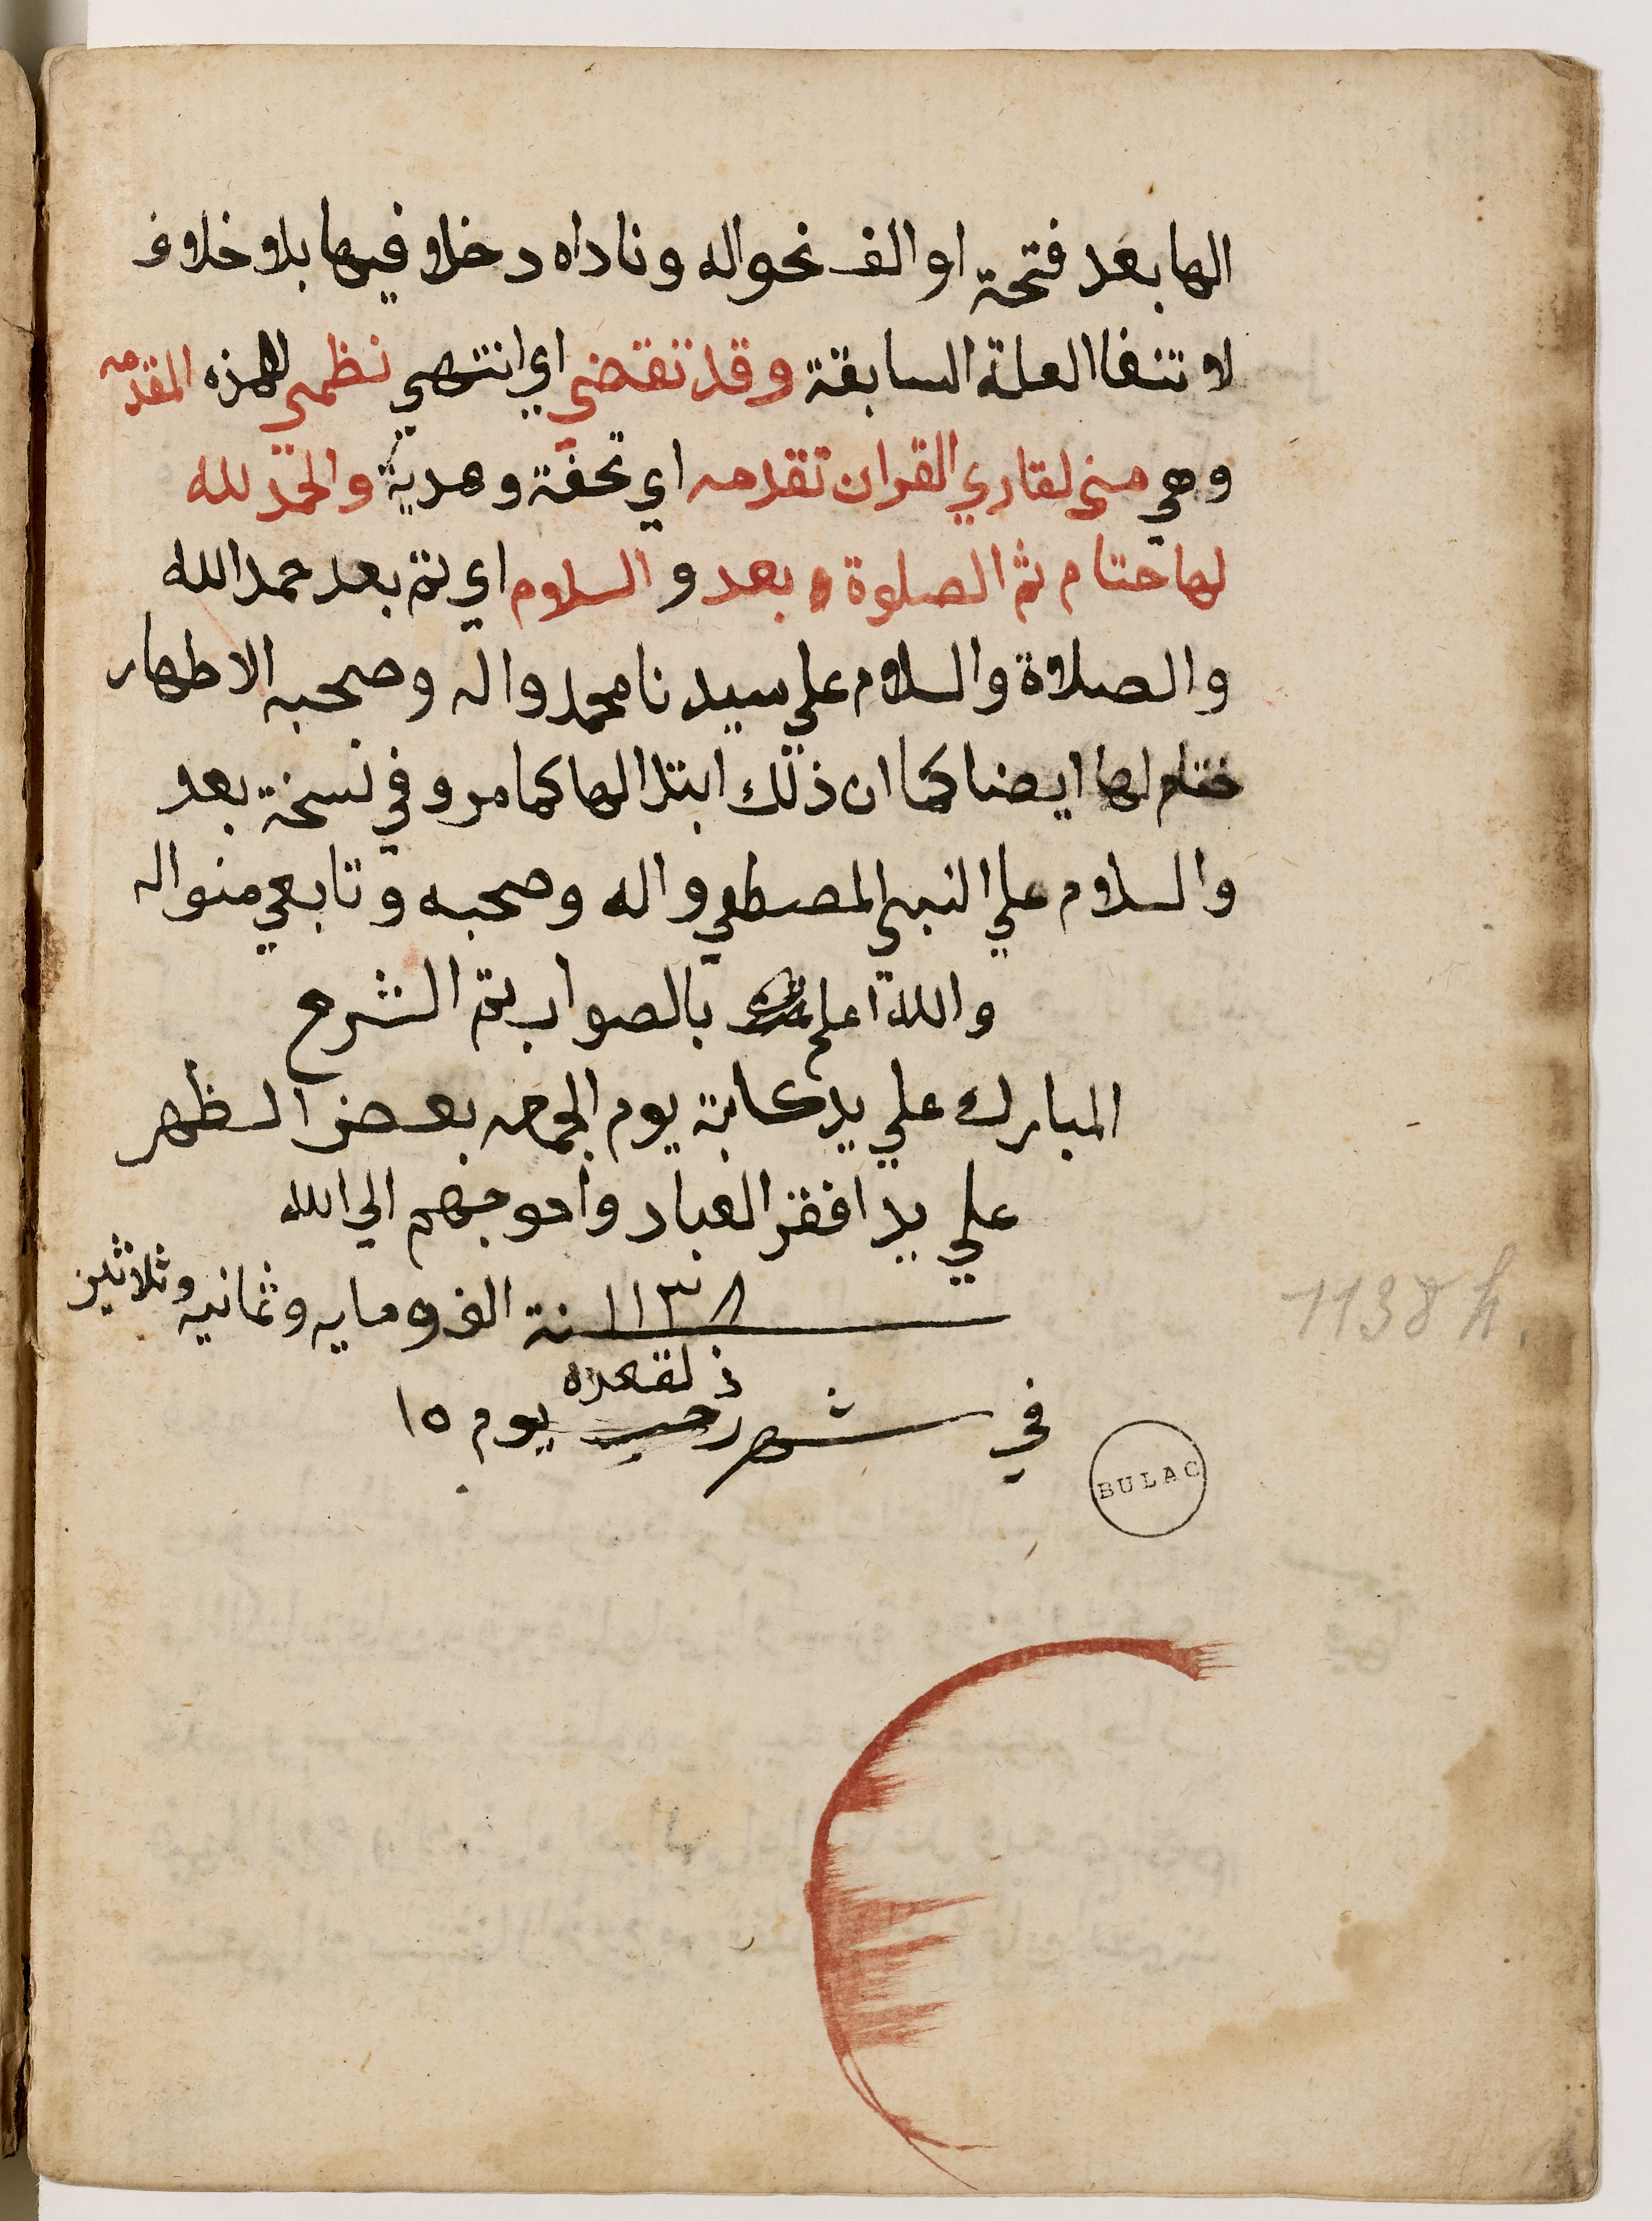 الها بعد فتحة او الف نحو اله وناداه دخلا فيها بلا خلاف
لا تنفا العلة السابقة وقد تقضي اي انتهي نظمي لهذه المقدمه
وهي مني لقاري القران تقدمه اي تحفة وهدية والحمد لله
لها ختام ثم الصلوة بعد والسلام اي ثم بعد حمد الله
والصلاة والسلام علي سيدنا محمد واله وصحبه الاطهار
ختام لها ايضا كما ان ذلك ابتدا لها كما مر وفي نسخة بعد
والسلام علي النبي المصطفي واله وصحبه وتابعي منواله
والله اعلم بالصواب تم الشرح
المبارك علي يد كاتبة يوم الجمعه بعض الظهر
علي يد افقر العباد واحوجهم الي الله
سنة ١١٣٨ الف ومايه وثمانيه وثلاثين
ذلقعده
في شهر رجب يوم ١٥
1138 h.
BULAC